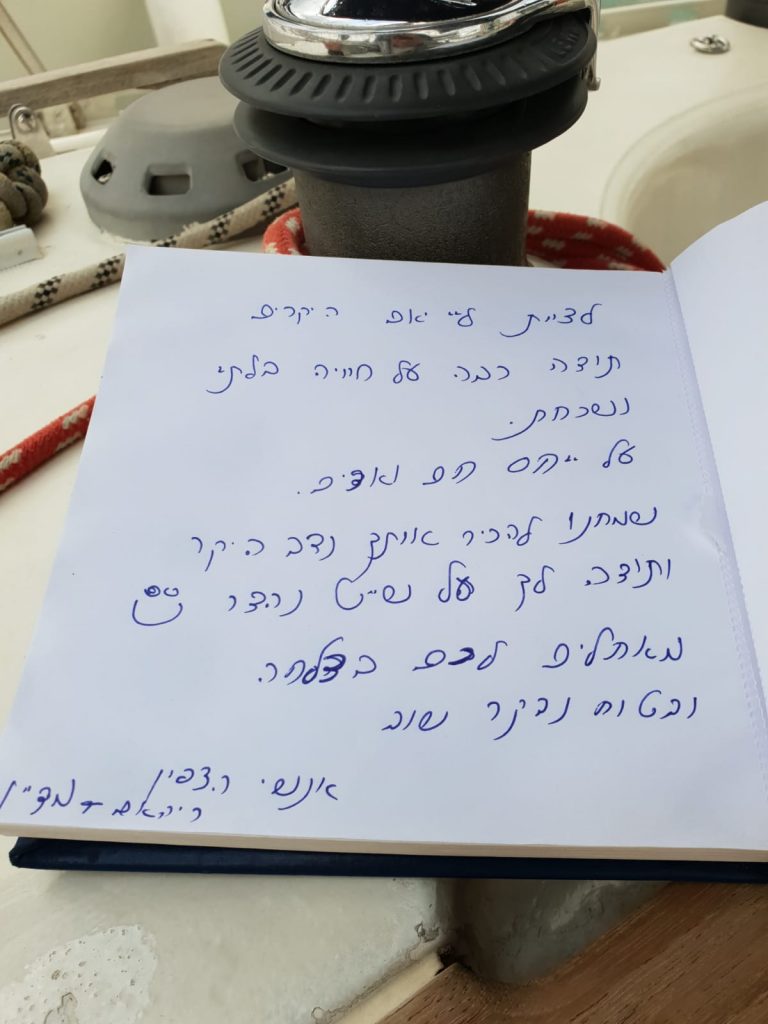 לצוות ליי ים היקרים
תודה רבה על חוויה בלתי
נשכחת.
על יחס חם ואדיב.
שמחנו להכיר אותך נדב היקר
ותודה לך על שייט נהדר
מאחלים לכם בצלחה.
ובטוח נבקר שוב
אנשי הצפון
ריהאם +